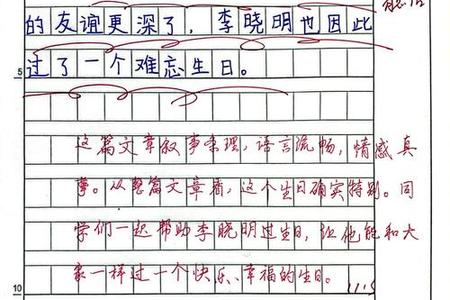 的友谊更深了，李晓明也因此
5
过了一个难忘生日。
这篇文章叙事条理，语言流畅，情感真
挚。从整篇文章看，这个生日确实特别。同
学们一起帮助李晓明过生日，让他能和大
家一样过一个快乐、幸福的生日。
10
11.5